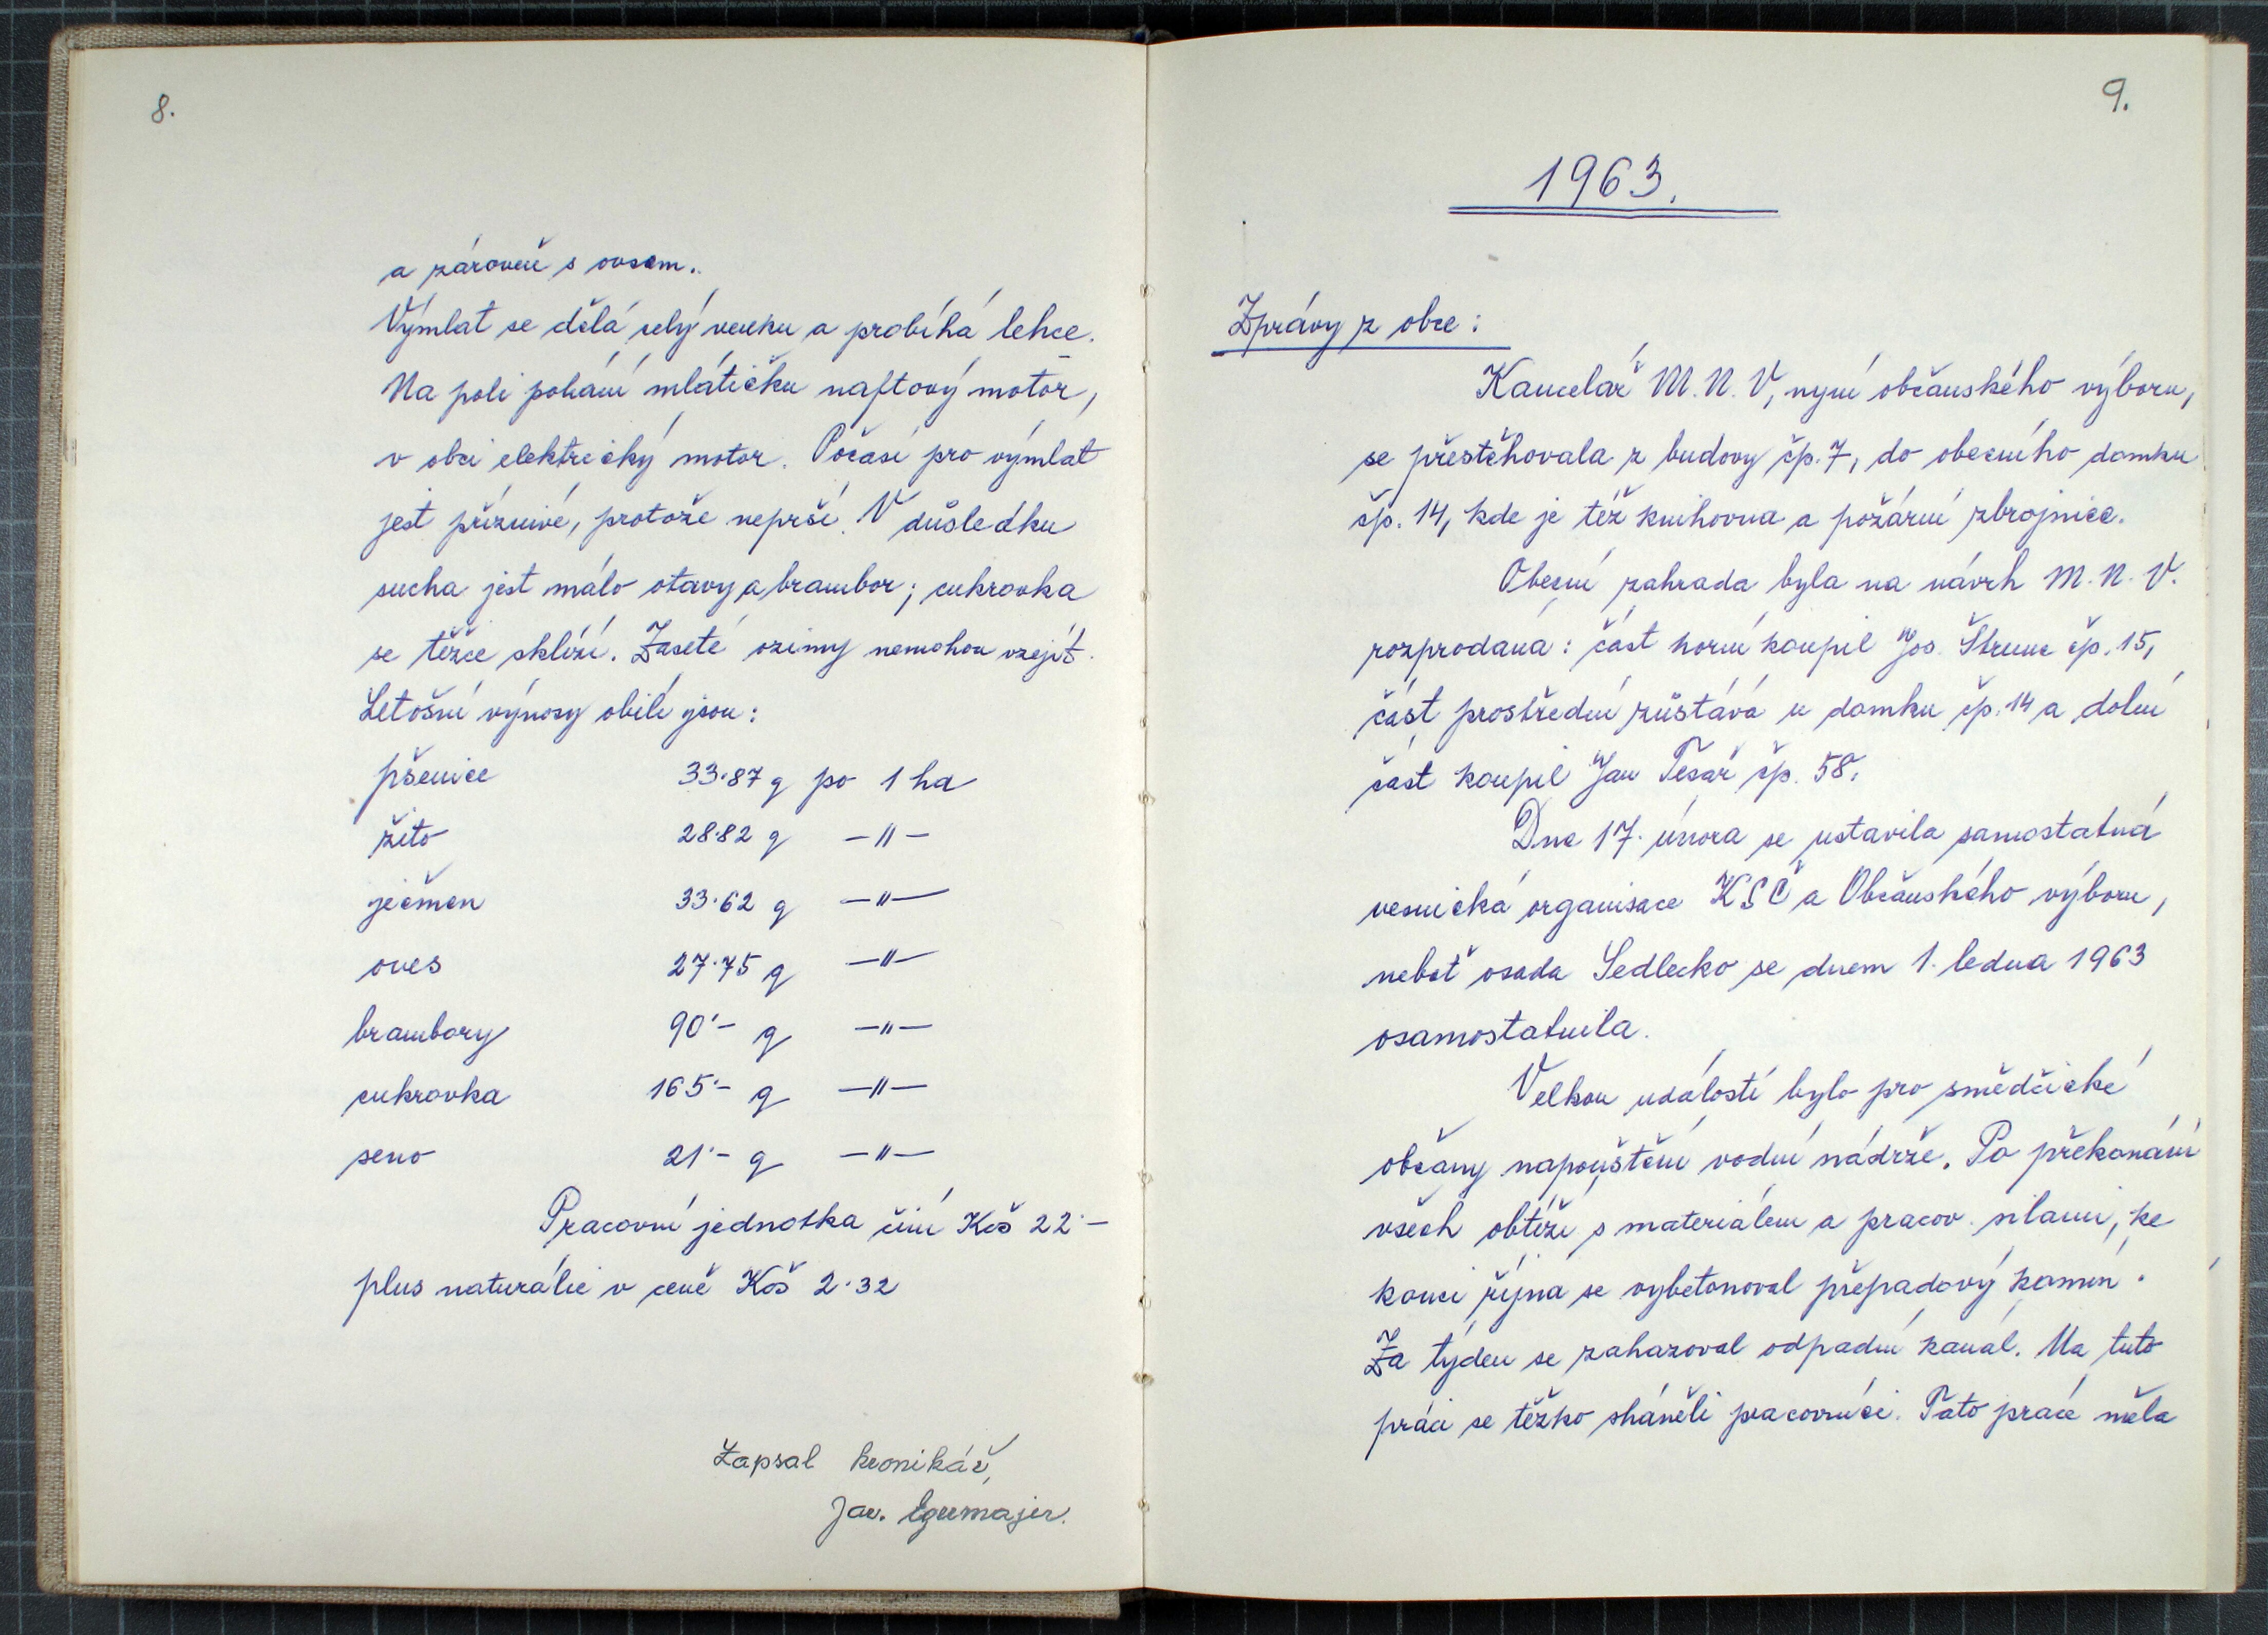 8.
a zároveň s ovsem.
Výmlat se dělá celý venku a probíhá lehce.
Na poli pohání mlátičku naftový motor,
v obci elektrický motor. Počasí pro výmlat
jest příznivé, protože neprší. V důsledku
sucha jest málo otavy a brambor; cukrovka
se těžce sklízí. Zaseté ozimy nemohou vzejít.
Letošní výnosy obilí jsou:
pšenice 33·87 q po 1 ha
žito 28·82 q —"—
ječmen 33·62 q —"—
oves 27·75 q —"—
brambory 90·— q —"—
cukrovka 165·— q —"—
seno 21·— q —"—
Pracovní jednotka činí Kčs 22·—
plus naturálie v ceně Kčs 2·32
Zapsal kronikář,
Jar. Egrmajer.
9.
1963.
Zprávy z obce:
Kancelář M.N.V, nyní občanského výboru,
se přestěhovala z budovy čp. 7, do obecního domku
čp. 14, kde je též knihovna a požární zbrojnice.
Obecní zahrada byla na návrh M.N.V.
rozprodána: část horní koupil Jos. Štrunc čp. 15,
část prostřední zůstává u domku čp. 14 a dolní
část koupil Jan Tesař čp. 58.
Dne 17. února se ustavila samostatná
vesnická organisace KSČ a Občanského výboru,
neboť osada Sedlecko se dnem 1. ledna 1963
osamostatnila.
Velkou událostí bylo pro smědčické
občany napouštění vodní nádrže. Po překonání
všech obtíží s materiálem a pracov. silami, ke
konci října se vybetonoval přepadový komín.
Za týden se zahazoval odpadní kanál. Na tuto
práci se těžko sháněli pracovníci. Tato práce měla